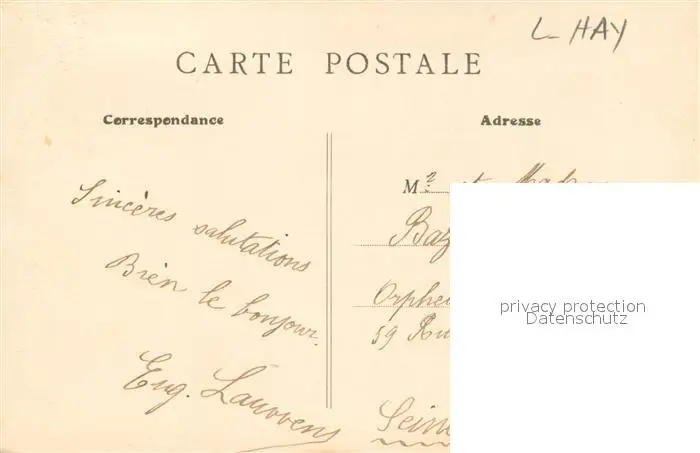 L HAY
CARTE POSTALE
Correspondance
Adresse
Sincères salutations
Bien le bonjour.
Eug. Lauwens
Mr et
59
privacy protection
Datenschutz